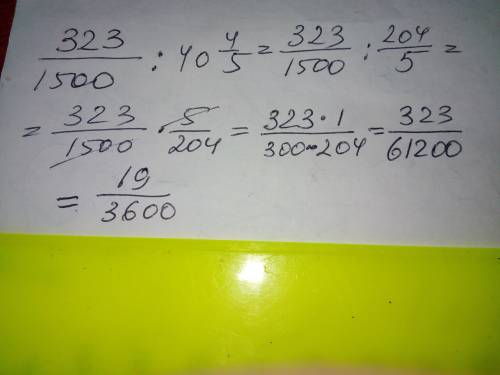 323/1500 : 40 4/5 = 323/1500 : 204/5 =
= 323/1500 · 5/204 = 323·1/300·204 = 323/61200
= 19/3600